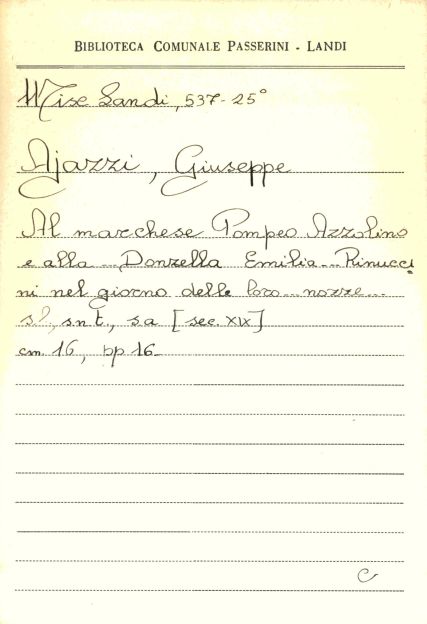 BIBLIOTECA COMUNALE PASSERINI - LANDI
Misc Landi, 537-25°
Ajazzi, Giuseppe
Al marchese Pompeo Azzolino
e alla ... Donzella Emilia ... Rinucci
ni nel giorno delle loro ... nozze ...
s.l., s.n.t., s.a [sec. XIX]
cm. 16, pp 16
C